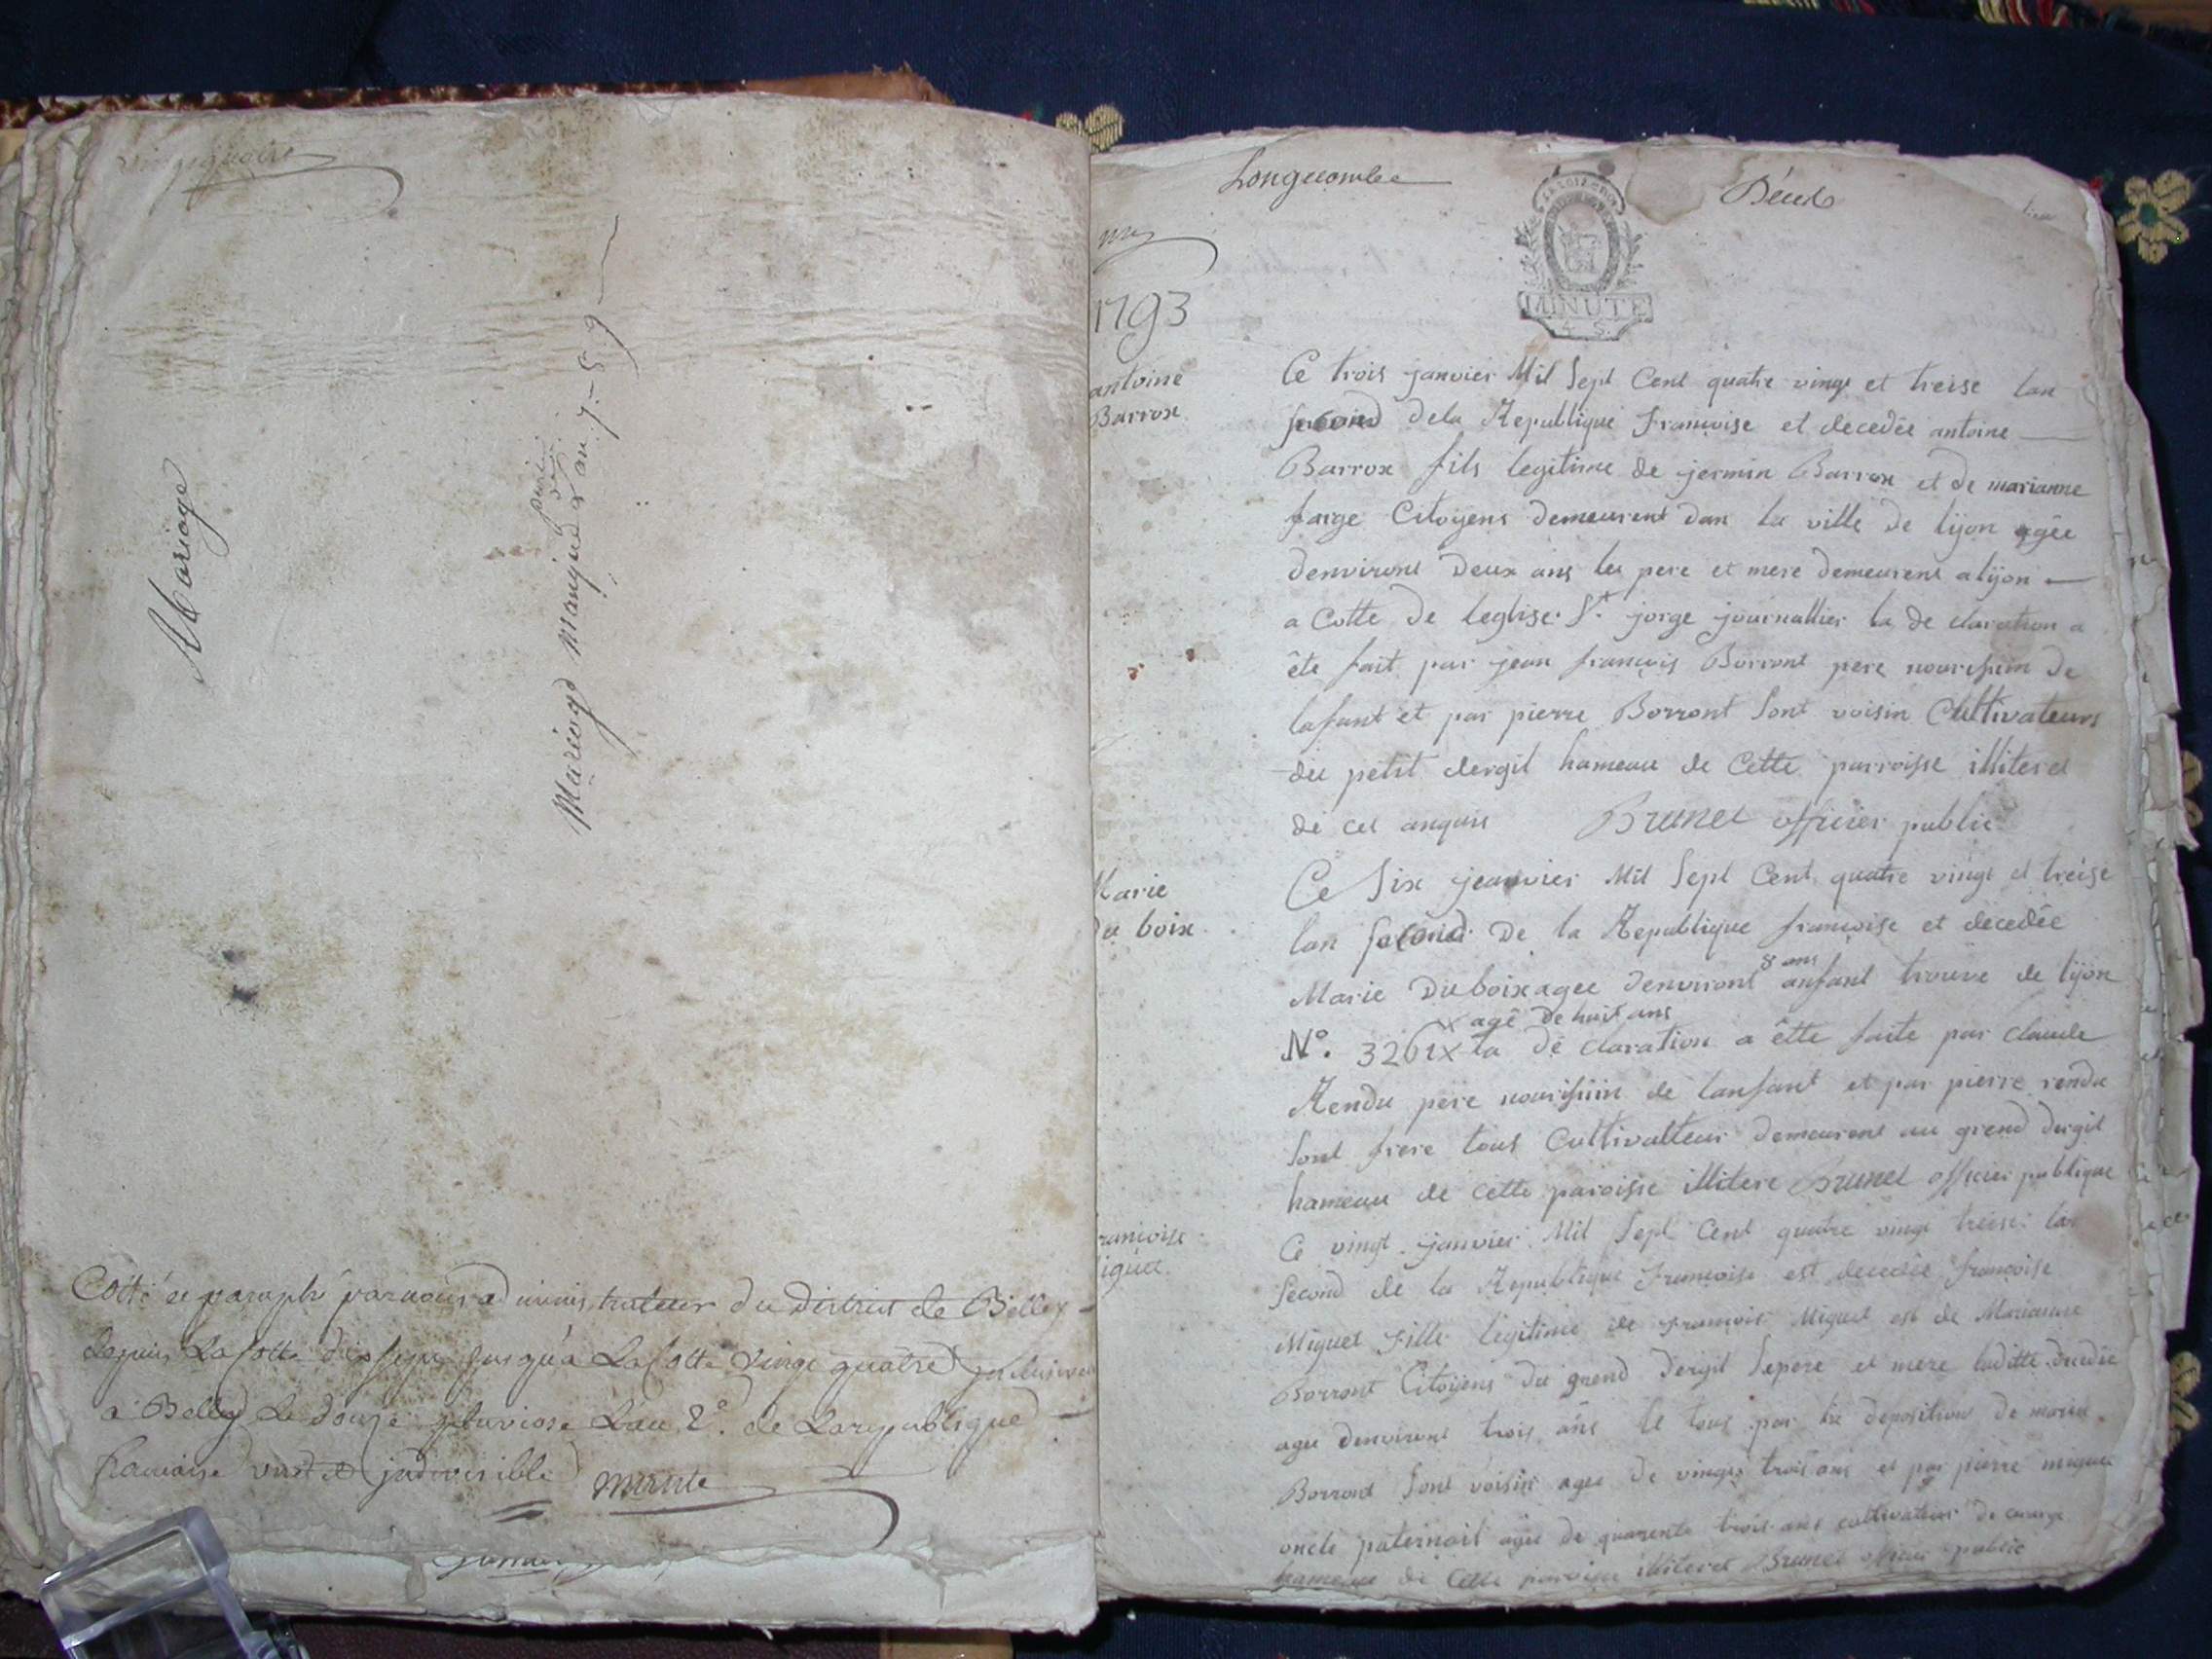 vingt quatre
Mariage
Mariage manque
Lan 7-8 9
Cotté et paraphé par nous administrateur du District de Belley
depuis La Cotte dix sept jusqu'a La Cotte vingt quatre
a Belley Le douze pluviose L'an 2e. de La republique
francaise une et indivisible
Longecombe
Décès
MINUTE
4. S.
1793
antoine
Barrox
Ce trois janvier Mil Sept Cent quatre vingt et treise lan
second dela Republique Francoise et decedée antoine
Barrox fils legitime de jermin Barrox et de marianne
farge Citoyens demeurent dan la ville de lijon agée
denviront Deux ans les pere et mere demeurent a lijon
a Cotte de leglise St jorge journallier la de claration a
ête fait par jean francois Borront pere nourissim de
lafant et par pierre Borront sont voisin Cultivateurs
du petit dergil hameau de Cette parroisse illiteret
de cel anquis Brunet officier public
Marie
Du boix
Ce six jeanvier Mil Sept Cent quatre vingt et treise
lan second De la Republique francoise et decedée
Marie Duboix agee denviront 8 ans anfant trouve de lijon
N°. 3261 x la dé claration a êtte faite par claude
x agé de huit ans
Rendu pere nourissim de lanfant et par pierre rendu
sont frere tous Cultivatteur demeurent au grend dergil
hameau de cette paroisse illitere Brunet officier publique
francoise
Miguet
Ce vingt janvier Mil Sept Cent quatre vingt treise lan
second de la Republique Francoise est decedée francoise
Miguet Fille legitime de Francois Miguet et de Marianne
Borront Citoyens du grend Dergil Sepere et mere laditte decedée
agee denviront trois ans le tous par la deposition de
Borront sont voisin agee de vingt trois ans et par pierre miguet
oncle paternail agee de quarente trois ans cultivateur de
hameau de Cette paroisse illiteret Brunet officier public